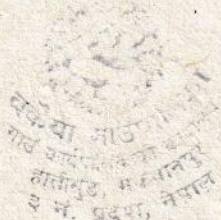 बकैया गाउँपालिका
गाउँ कार्यपालिकाको कार्यालय
हात्तीसुडे मकवानपुर
३ नं. प्रदेश नेपाल